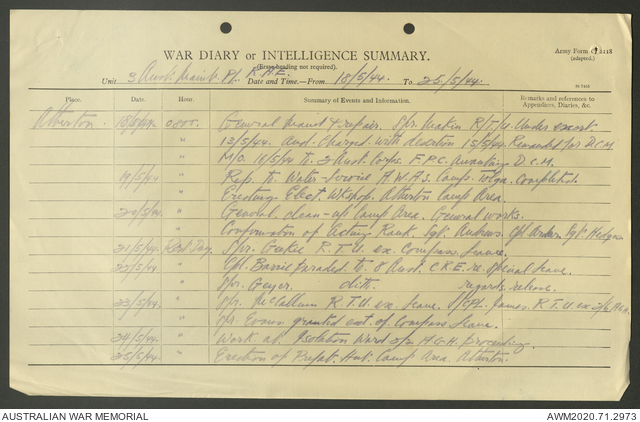 Army Form C. 2118
(adapted.)
WAR DIARY or INTELLIGENCE SUMMARY.
(Erase heading not required).
Unit 3 Aust. Maint. Pl. R.A.E. Date and Time.—From 18/5/44. To 25/5/44.
Place. Date. Hour. Summary of Events and Information. Remarks and references to Appendices, Diaries, &c.
Atherton. 18/5/44. 0800. General Maint & repair. Spr. Makin R/T/U. Under escort
" 13/5/44. and Charged with desertion 15/5/44. Remanded for D.C.M.
" M/O. 16/5/44 to 2 Aust. Corps. F.P.C. Awaiting D.C.M.
19/5/44 " Rep. to Water Service A.W.A.S. Camp. Tolga. Completed.
" Erecting Elect. Wkshop. Atherton Camp Area.
20/5/44. " General clean-up Camp Area. General works.
" Confirmation of Acting Rank Sgt. Andrews. Cpl Sgt. Hodgson
21/5/44 Rest Day. Spr. Geekie R.T.U. ex. Compass. Leave.
22/5/44 " Cpl. Barrie paraded to 8 Aust. C.R.E. re. special leave.
" Spr. Geyer. ditto regards release.
23/5/44. " Spr. McCallum R.T.U. ex. Leave. L/Cpl. James. R.T.U. ex 2/6
" Spr. Evans granted ext. of Compass Leave.
24/5/44 " Work at Isolation Ward 2/2 A.G.H. proceeding.
25/5/44. " Erection of Prefab. Hut. Camp Area. Atherton.
AUSTRALIAN WAR MEMORIAL
AWM2020.71.2973